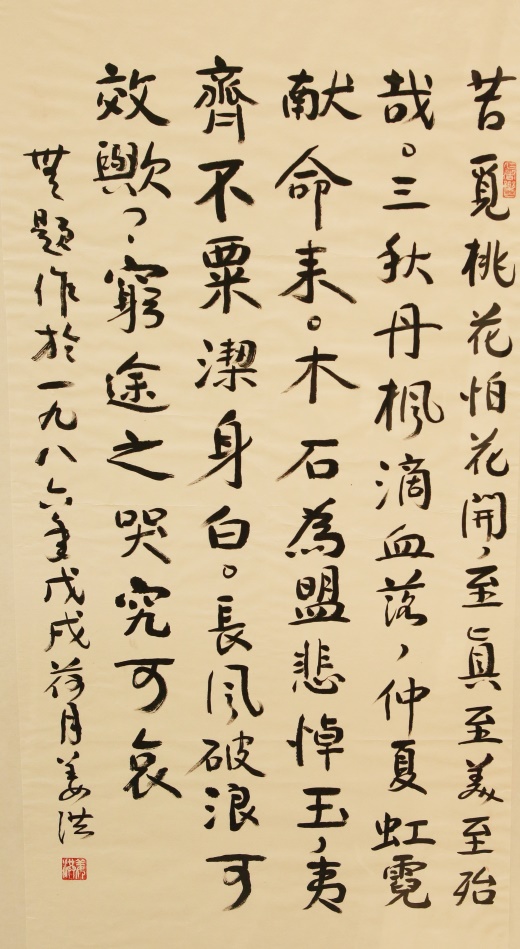 昔覓桃花怕花開，至眞至美至殆
哉。三秋丹楓滴血落，仲夏虹霓
献命来。木石為盟悲悼玉，夷
齊不粟潔身白。長風破浪可
效歟？窮途之哭究可哀
無題作於一九八六年戊戌荷月姜洪